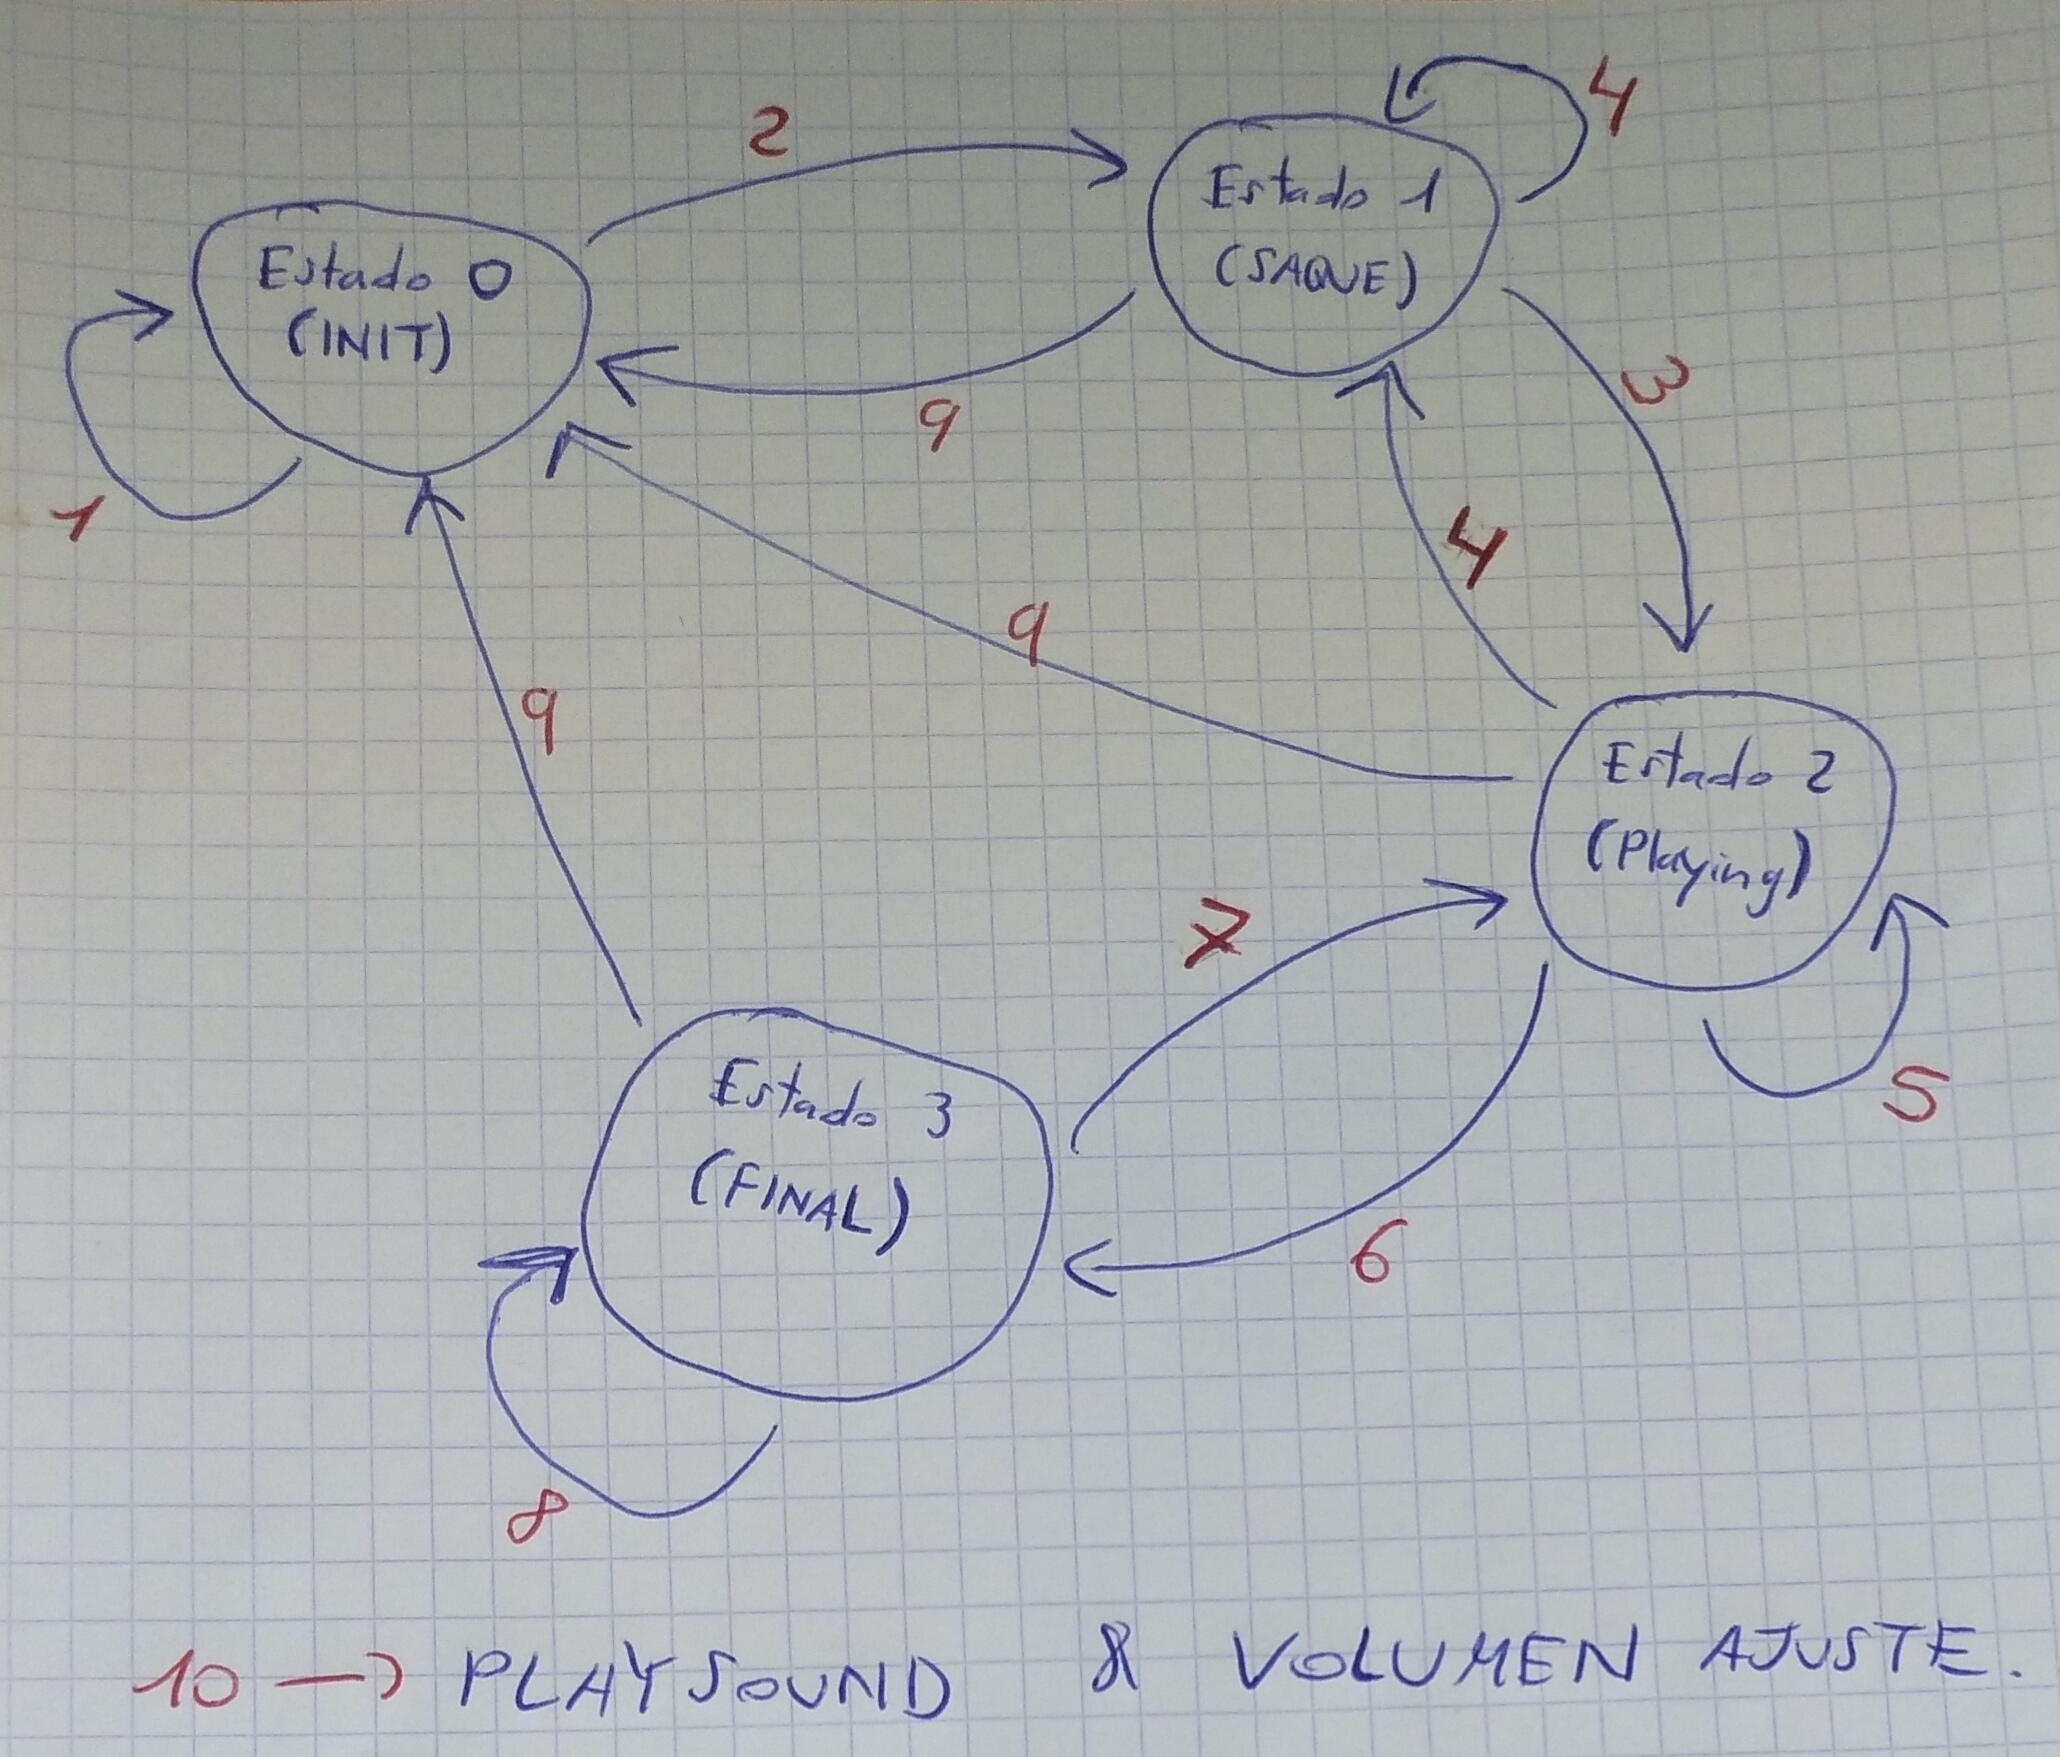 2
4
Estado 0
(INIT)
Estado 1
(SAQUE)
1
9
3
4
9
9
Estado 2
(Playing)
7
5
Estado 3
(FINAL)
6
8
10 → PLAYSOUND & VOLUMEN AJUSTE.